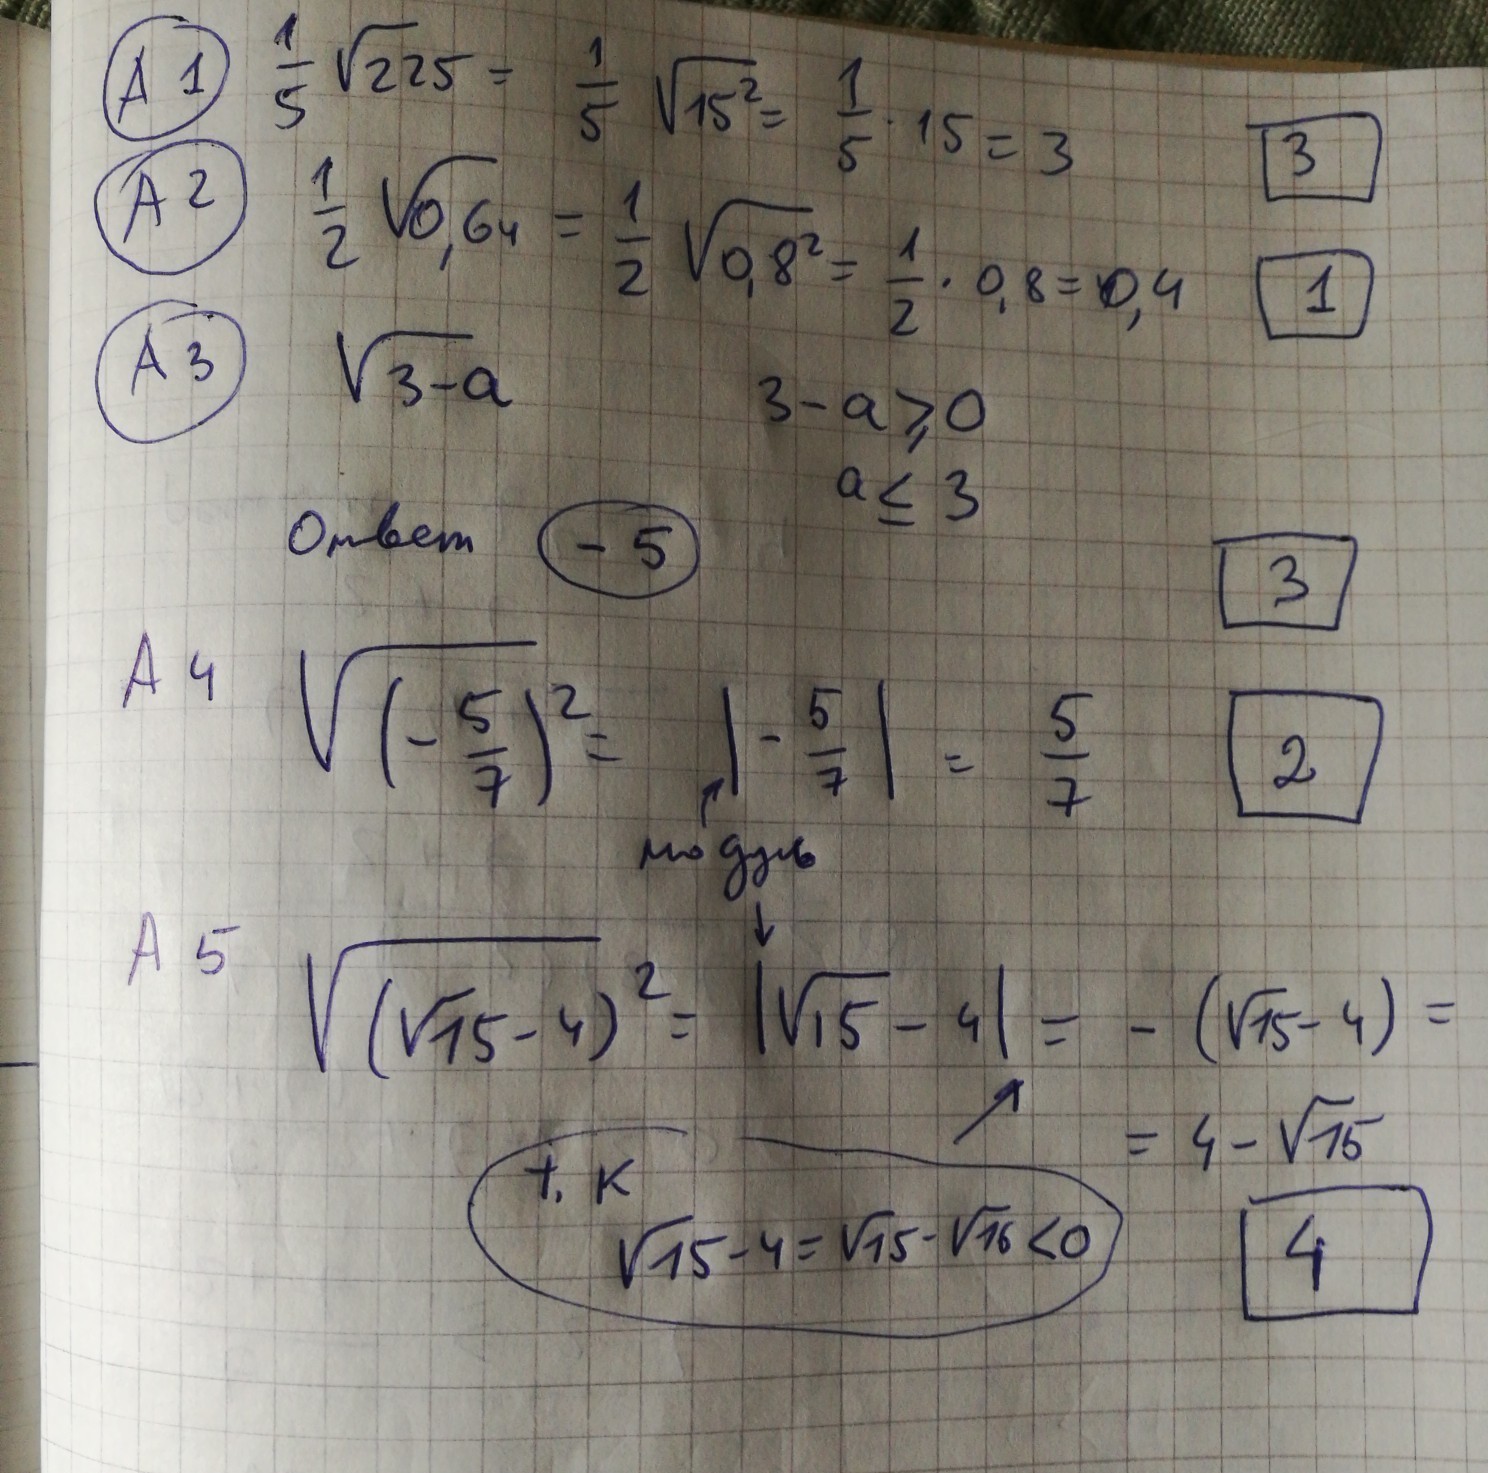 А 1 1/5 √225 = 1/5 √15² = 1/5 · 15 = 3 3
А 2 1/2 √0,64 = 1/2 √0,8² = 1/2 · 0,8 = 0,4 1
А 3 √3-a 3 - a ≥ 0
a ≤ 3
Ответ - 5 3
А 4 √(- 5/7)² = |- 5/7| = 5/7 2
модуль
А 5 √(√15 - 4)² = |√15 - 4| = - (√15 - 4) =
= 4 - √15
т. к
√15 - 4 = √15 - √16 < 0 4